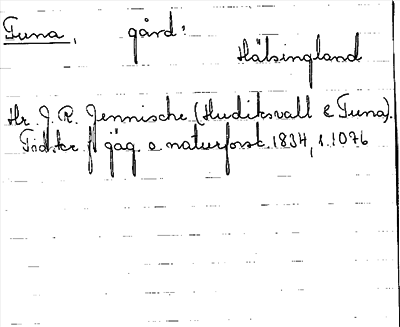 Tuna, gård:
Hälsingland
Hr. J. R. Jennische (Hudiksvall & Tuna).
Tidskr f jäg. o naturforsk. 1834, s. 1076